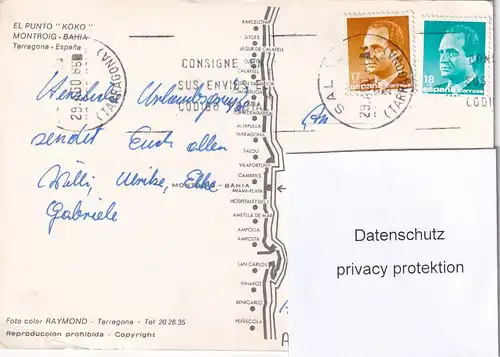 EL PUNTO "KOKO"
MONTROIG - BAHIA
Tarragona - España
Herzliche Urlaubsgrüsse
sendet Euch allen
Willi, Ulrike, Elke
Gabriele
CONSIGNE
SUS ENVIOS
CODIGO POSTAL
29 AGO 86
(TARRAGONA)
SAL
29
(TARRAGONA)
17
españa
correos
18
españa
correos
An
BARCELONA
SITGES
SEGUR DE CALAFELL
CALAFELL
ALTAFULLA
TARRAGONA
SALOU
VILAFORTUNY
CAMBRILS
MONTROIG - BAHIA
MIAMI-PLAYA
HOSPITALET DEL
AMETLLA DE MAR
AMPOLLA
AMPOSTA
SAN CARLOS
VINAROZ
BENICARLO
PEÑISCOLA
Datenschutz
privacy protektion
Foto color RAYMOND - Tarragona - Tel 20 26 35
Reproducción prohibida - Copyright